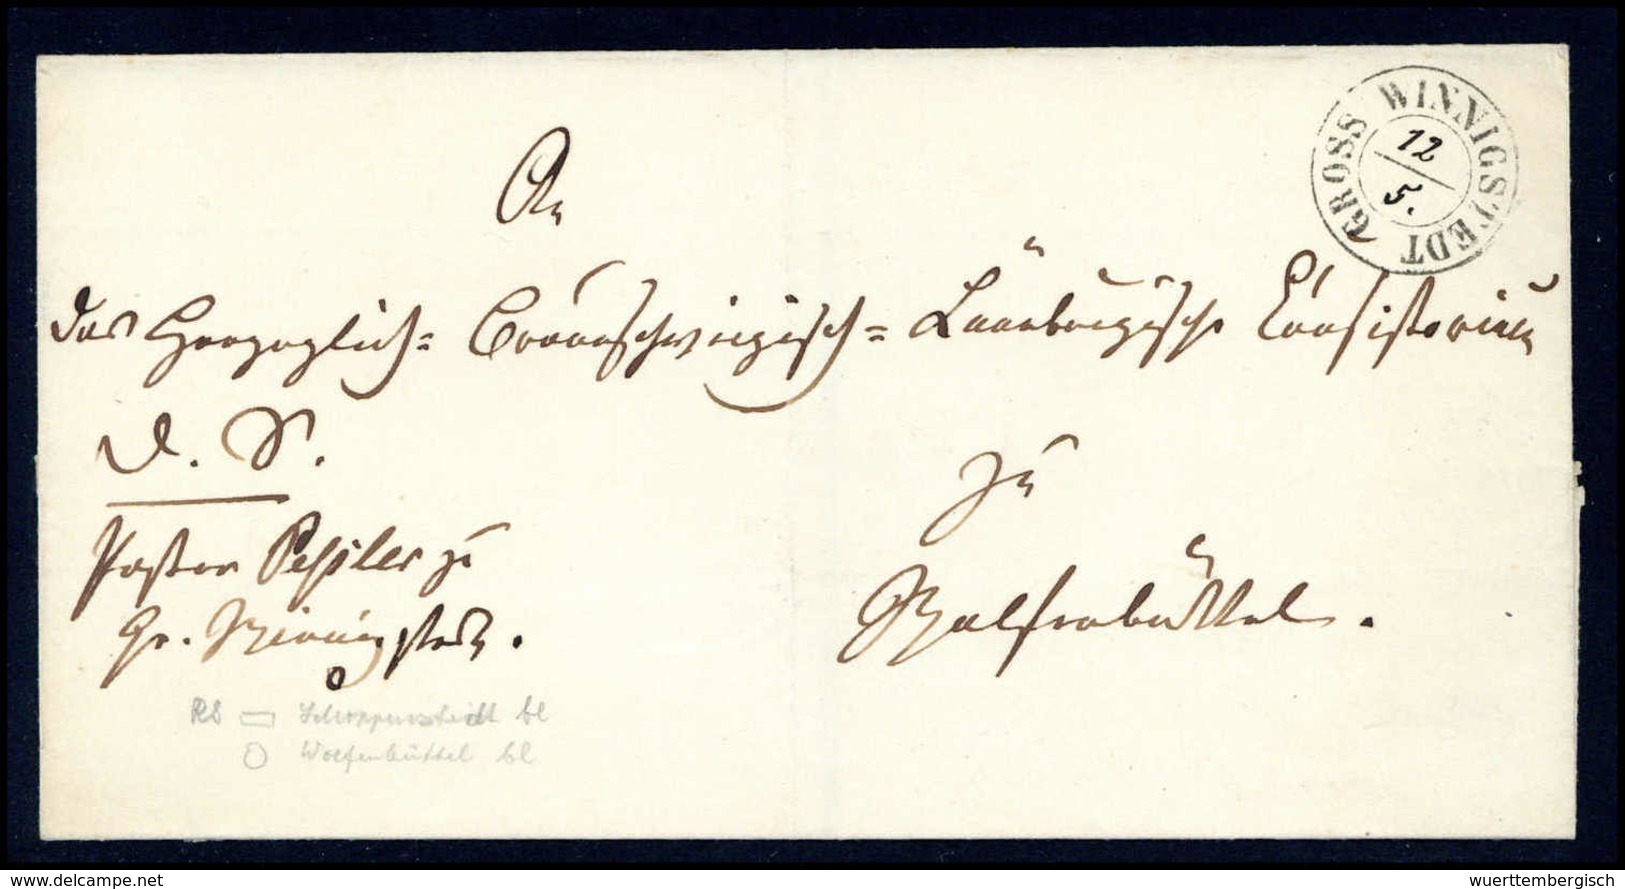 GROSS WINNIGSTEDT
12/5.
An
das Herzoglich= Braunschweigisch= Lüneburgische Consistorium
D. S.
zu
Pastor Peßler zu
Wolfenbüttel.
Gr. Winnigstedt.
RS Schöppenstedt bl
Wolfenbüttel bl
www.delcampe.net
wuerttembergisch